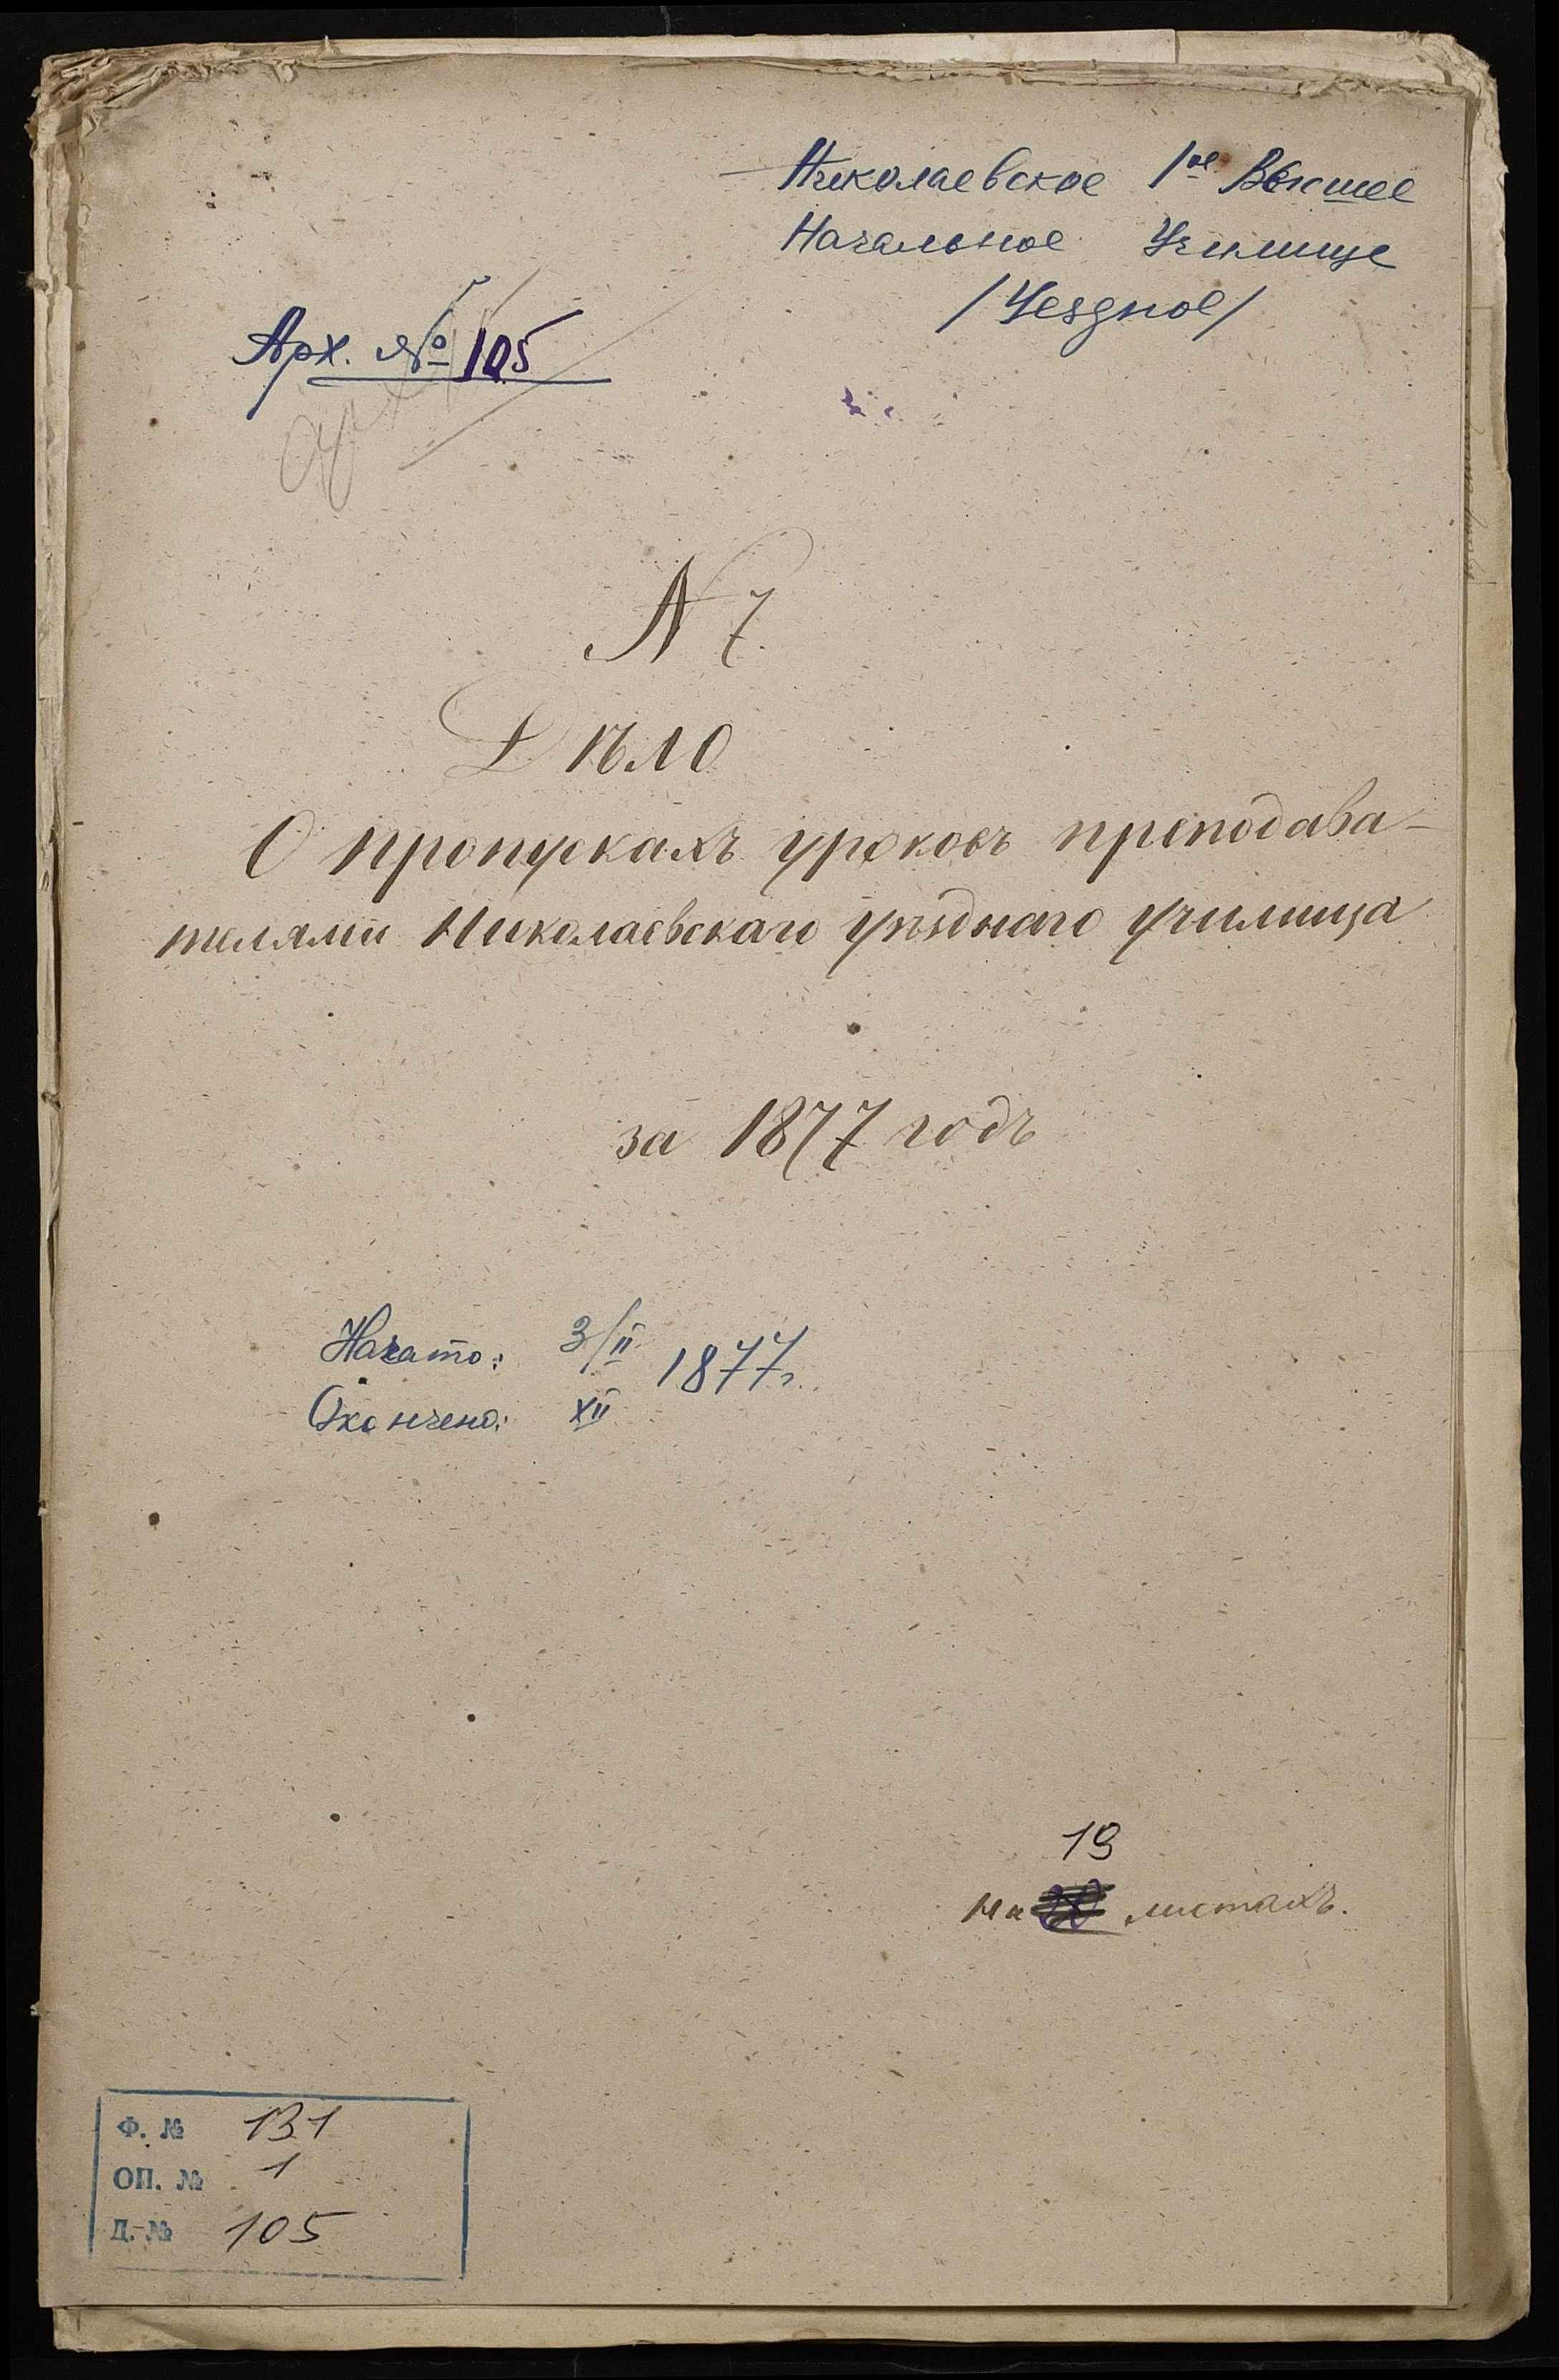 Николаевское 1ое Высшее
Начальное Училище
/Уездное/
Арх. № 105
N 7.
Дѣло
О пропускахъ уроковъ преподава-
телями Николаевскаго уѣзднаго училища
за 1877 годъ
Начато: 3/II 1877г.
Окончено: XII
19
на листахъ.
Ф. № 131
ОП. № 1
Д. № 105